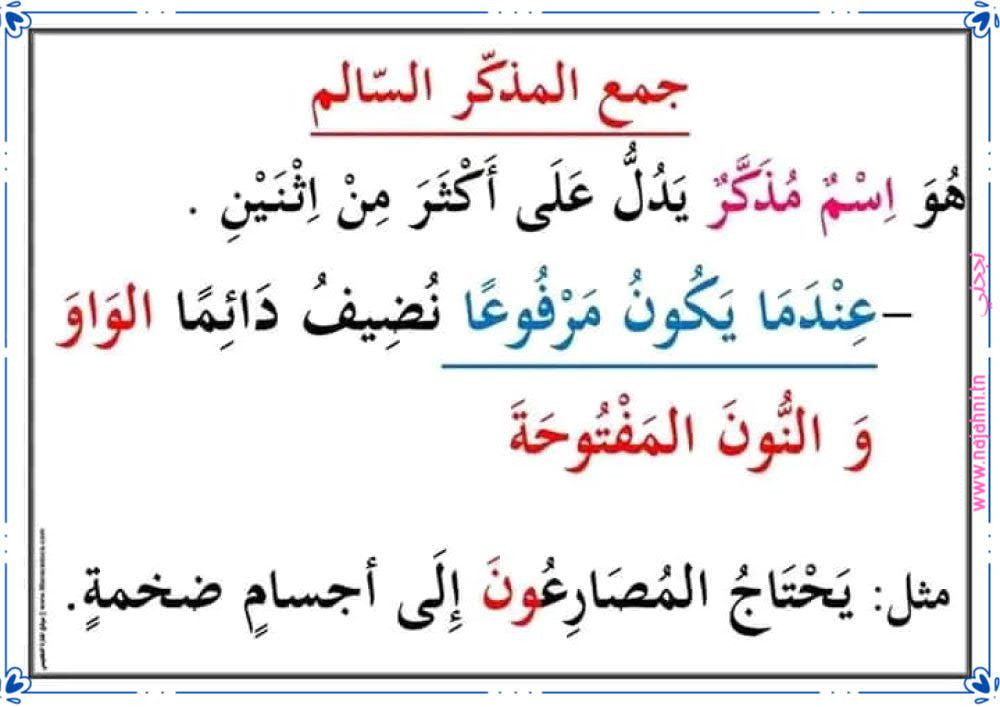 جمع المذكّر السّالم
هُوَ اِسْمٌ مُذَكَّرٌ يَدُلُّ عَلَى أَكْثَرَ مِنْ اِثْنَيْنِ .
-عِنْدَمَا يَكُونُ مَرْفُوعًا نُضِيفُ دَائِمًا الوَاوَ
وَ النُّونَ المَفْتُوحَةَ
مثل: يَحْتَاجُ المُصَارِعُونَ إِلَى أجسامٍ ضخمةٍ.
نجحني
www.najahni.tn